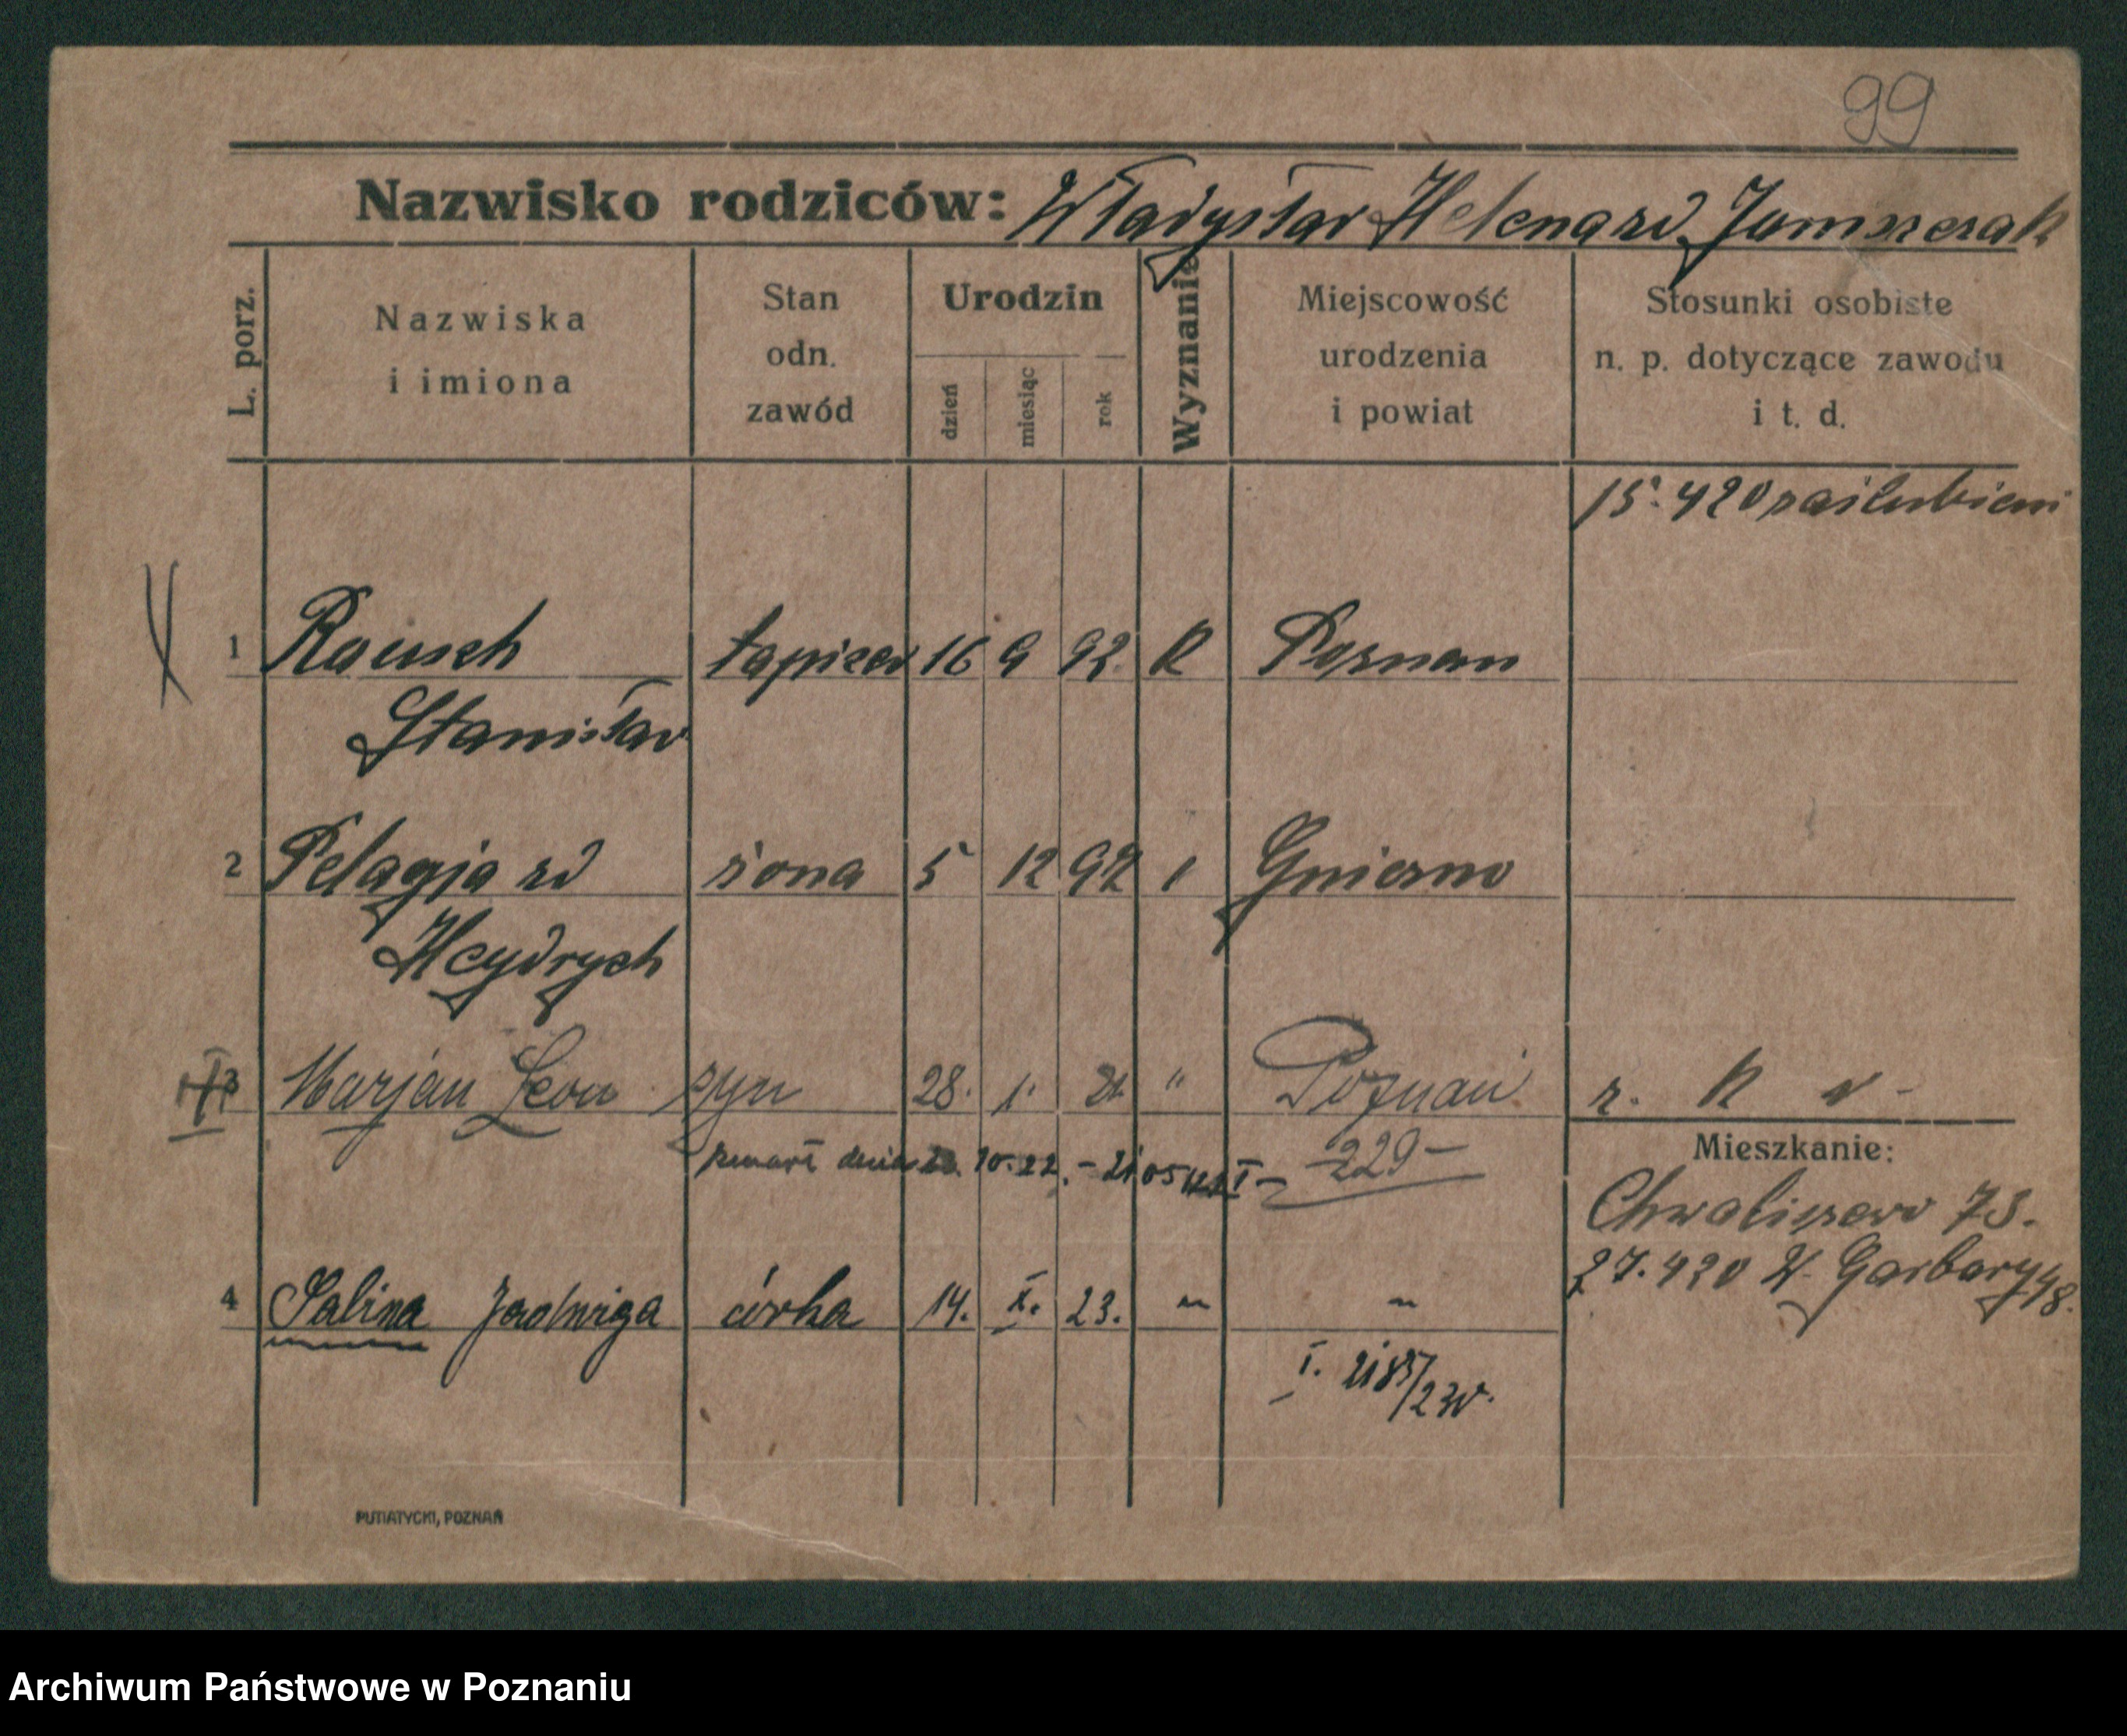 99
Nazwisko rodziców: Władysław Helena zd
L. porz.
Nazwiska i imiona
Stan odn. zawód
Urodzin
dzień miesiąc rok
Wyznanie
Miejscowość urodzenia i powiat
Stosunki osobiste n. p. dotyczące zawodu i t. d.
15.4 20 zaślubieni
1 Rausch tapicer 16 9 92 R Poznan
Stanisław
2 Pelagja zd żona 5 12 92 Gniezno
Heydrych
3 Marjan Leon syn 28. 1. 21 " Poznań
z. K w -
zmarł dnia 10.22.
229-
Mieszkanie:
Chwaliszewo 73.
27.4 20 W. Garbary 48.
4 Salina Jadwiga córka 14. X. 23. " "
I. 2185/23
PUTIATYCKI, POZNAŃ
Archiwum Państwowe w Poznaniu